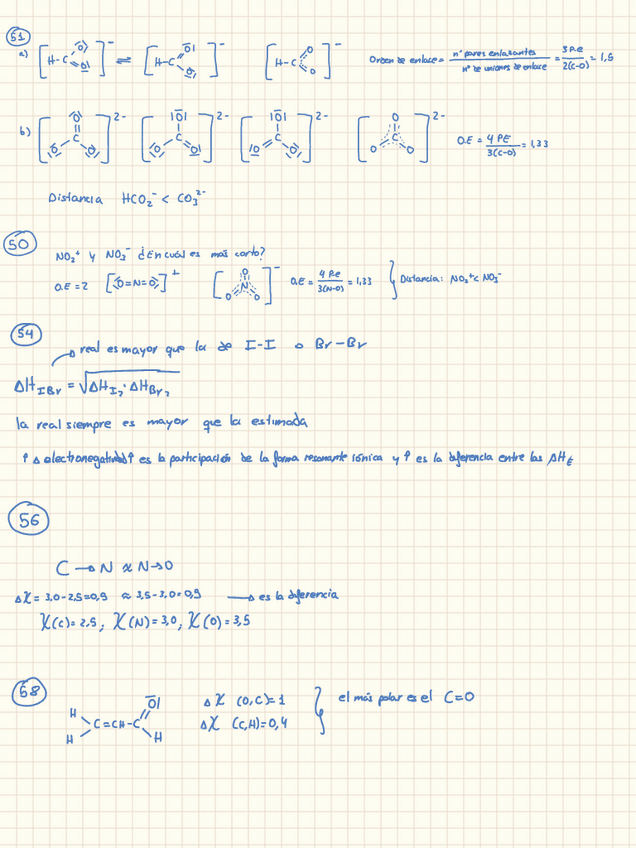 51
a) [H-C O O]⁻ ⇌ [H-C O O]⁻ [H-C O O]⁻ Orden de enlace = nº pares enlazantes / nº de uniones de enlace = 3 P.e / 2(C-O) = 1,5
b) [O C O O]²⁻ [|O| C O O]²⁻ [|O| C O O]²⁻ [O C O O]²⁻ O.E = 4 PE / 3(C-O) = 1,33
Distancia HCO₂⁻ < CO₃²⁻
50
NO₂⁺ y NO₃⁻ ¿En cuál es más corto?
O.E = 2 [O=N=O]⁺ [O N O O]⁻ O.E = 4 P.e / 3(N-O) = 1,33 } Distancia: NO₂⁺ < NO₃⁻
54
real es mayor que la de I-I o Br-Br
ΔH IBr = √ΔH I₂ · ΔH Br₂
la real siempre es mayor que la estimada
↑ Δ electronegatividad ↑ es la participación de la forma resonante iónica y ↑ es la diferencia entre las ΔHₑ
56
C → N ≈ N → O
Δχ = 3,0-2,5=0,5 ≈ 3,5-3,0=0,5 → es la diferencia
χ(C) = 2,5 ; χ(N) = 3,0 ; χ(O) = 3,5
58
H H C=CH-C O| H Δχ (O,C)=1 } el más polar es el C=O
Δχ (C,H)=0,4